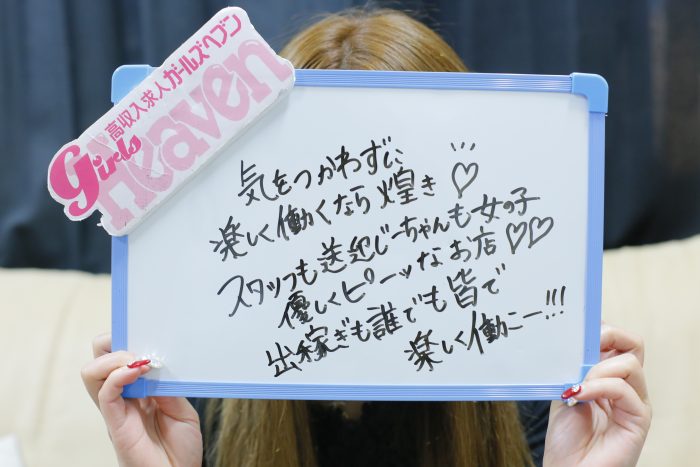 高収入求人ガールズヘブン
Girls Heaven
気をつかわずに、
楽しく働くなら煌き♡
スタッフも送迎じーちゃんも女の子
優しくピーッなお店♡♡
出稼ぎも誰でも皆で
楽しく働こー!!!